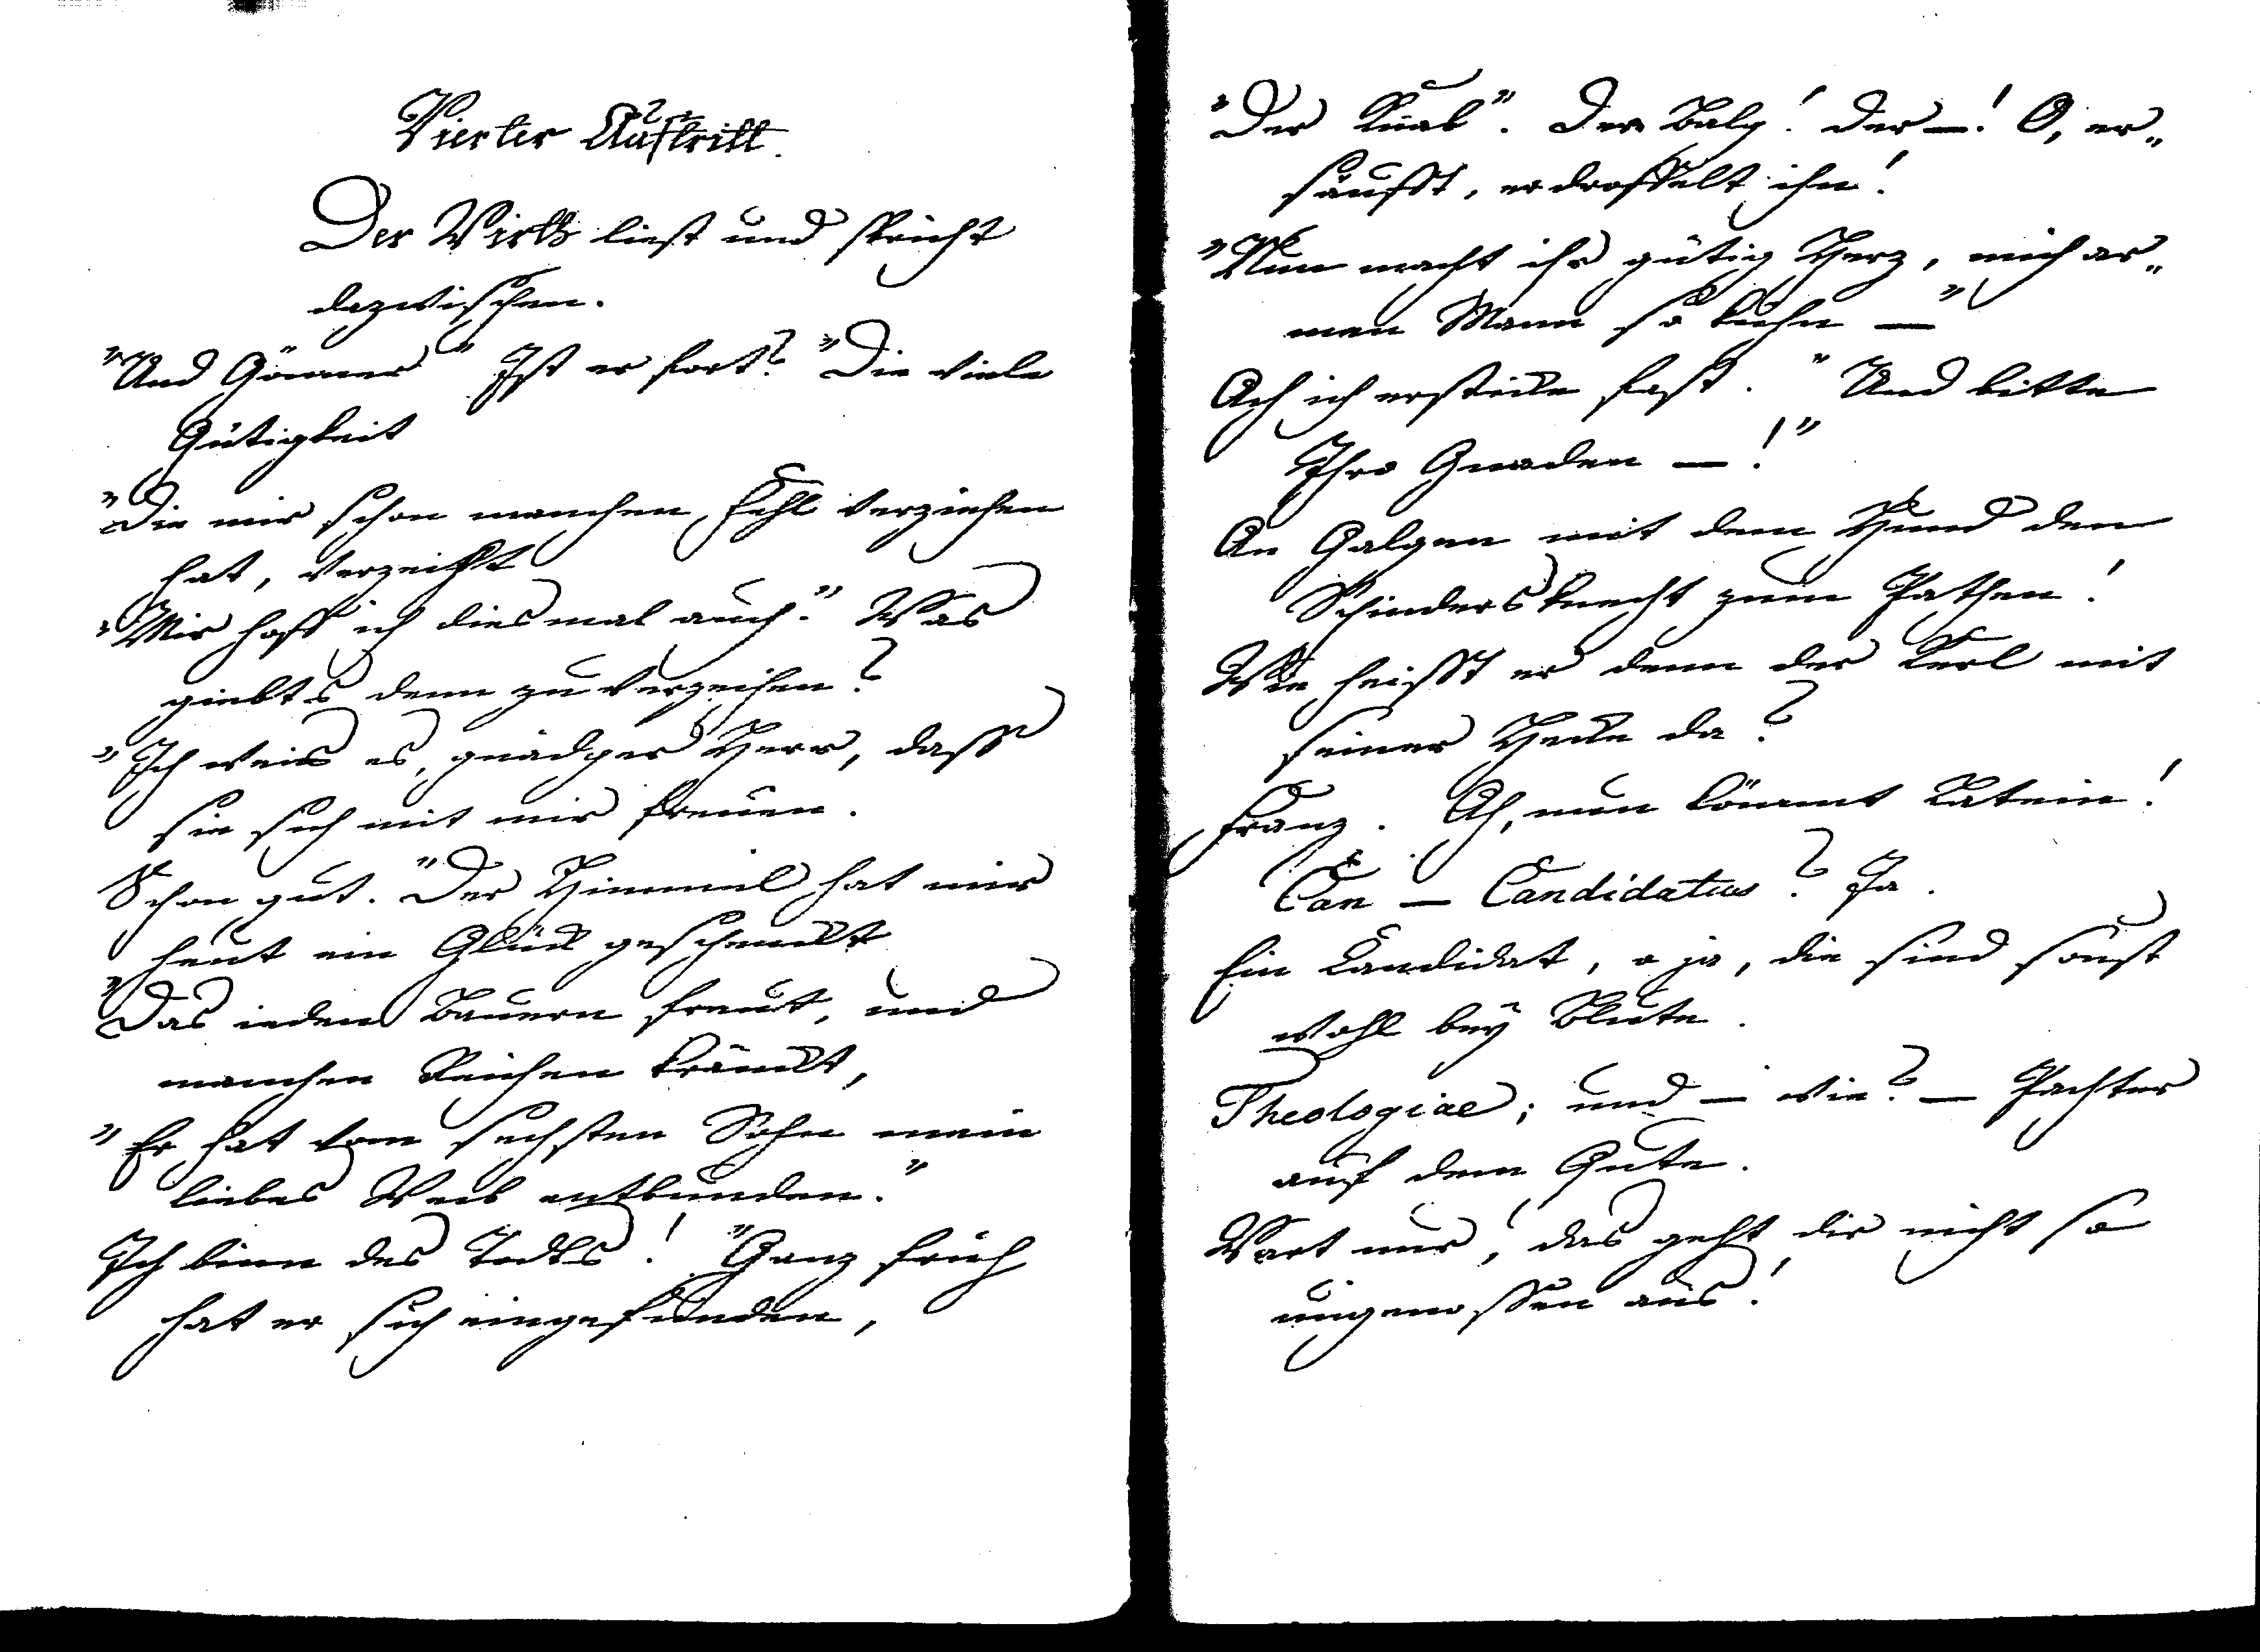 Vierter Auftritt.
Der Wirth liest und spricht
dazwischen.
"Und Gönner" Ist er fort? "Die viele
Gütigkeit
"Die mir schon manchen Fehl verziehen
hat, verzeiht
"Mir hoff ich dies mal auch." Was
giebts denn zu verzeihen?
"Ich weis es, gnädger Herr, dass
sie sich mit mir freuen.
Schon gut. "Der Himmel hat mir
heut ein Glück geschenckt
"Das ieden Bauern freut, und
manchen Reichen kränckt,
"Er hat vom sechsten Sohn mein
liebes Weib entbunden."
Ich binn des Todts! "Ganz früh
hat er sich eingefunden,
"Der Knab". Der Balg! der —! O, er„
säufft, erdrosselt ihn!
"Nun macht ihr gütig Herz, mich ar„
men Mann so kühn —"
Ach ich ersticke fast. "Und bitte
Ihro Gnaden —!"
An Galgen mit dem Hund den
Schindersknecht zum Pathen!
Wie heisst er denn der Kerl mit
seiner Hecke da?
Franz. Ah, nun kömmt Latein!
Can — Candidatus? Ja.
Ein Candidat, o ja, die sind sonst
wohl bey Blute.
Theologiae; und — wie? — Pachter
auf dem Gute.
Wart nur, das geht dir nicht so
ungenossen aus!